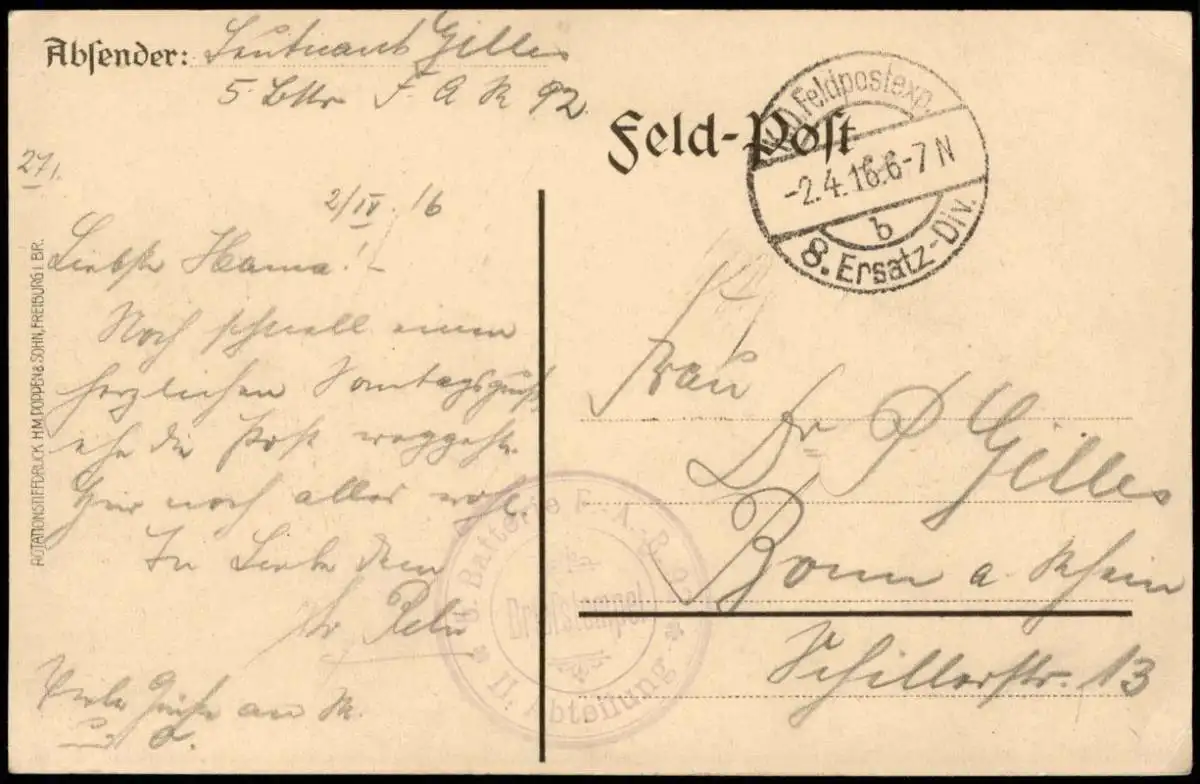 Absender: Leutnant Gilles
5. Bttr F A R 92.
Feld-Post
K.D. Feldpostexp.
-2.4.16.6-7 N
b
8. Ersatz-Div.
27/.
2/IV. 16
Liebste Mama! -
Noch schnell einen
herzlichen Sonntagsgruß,
ehe die Post weggeht.
Hier noch alles wohl.
In Liebe Dein
Viele Grüße an
Frau
Dr P Gilles
Bonn a. Rhein
Schillerstr. 13
Batterie F.-A.-R.
Briefstempel
II. Abteilung
ROTATIONSTIEFDRUCK H.M. POPPEN & SOHN, FREIBURG I. BR.